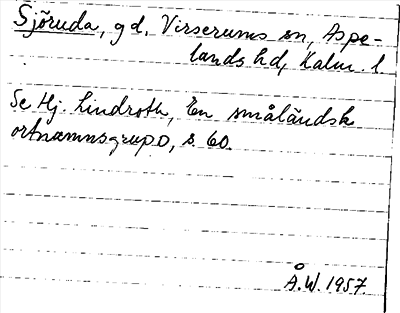 Sjöruda, gd, Virserums sn, Aspe-
lands hd, Kalm. l.
Se Hj. Lindroth, En småländsk
ortnamnsgrupp, s. 60.
Å.W. 1957.